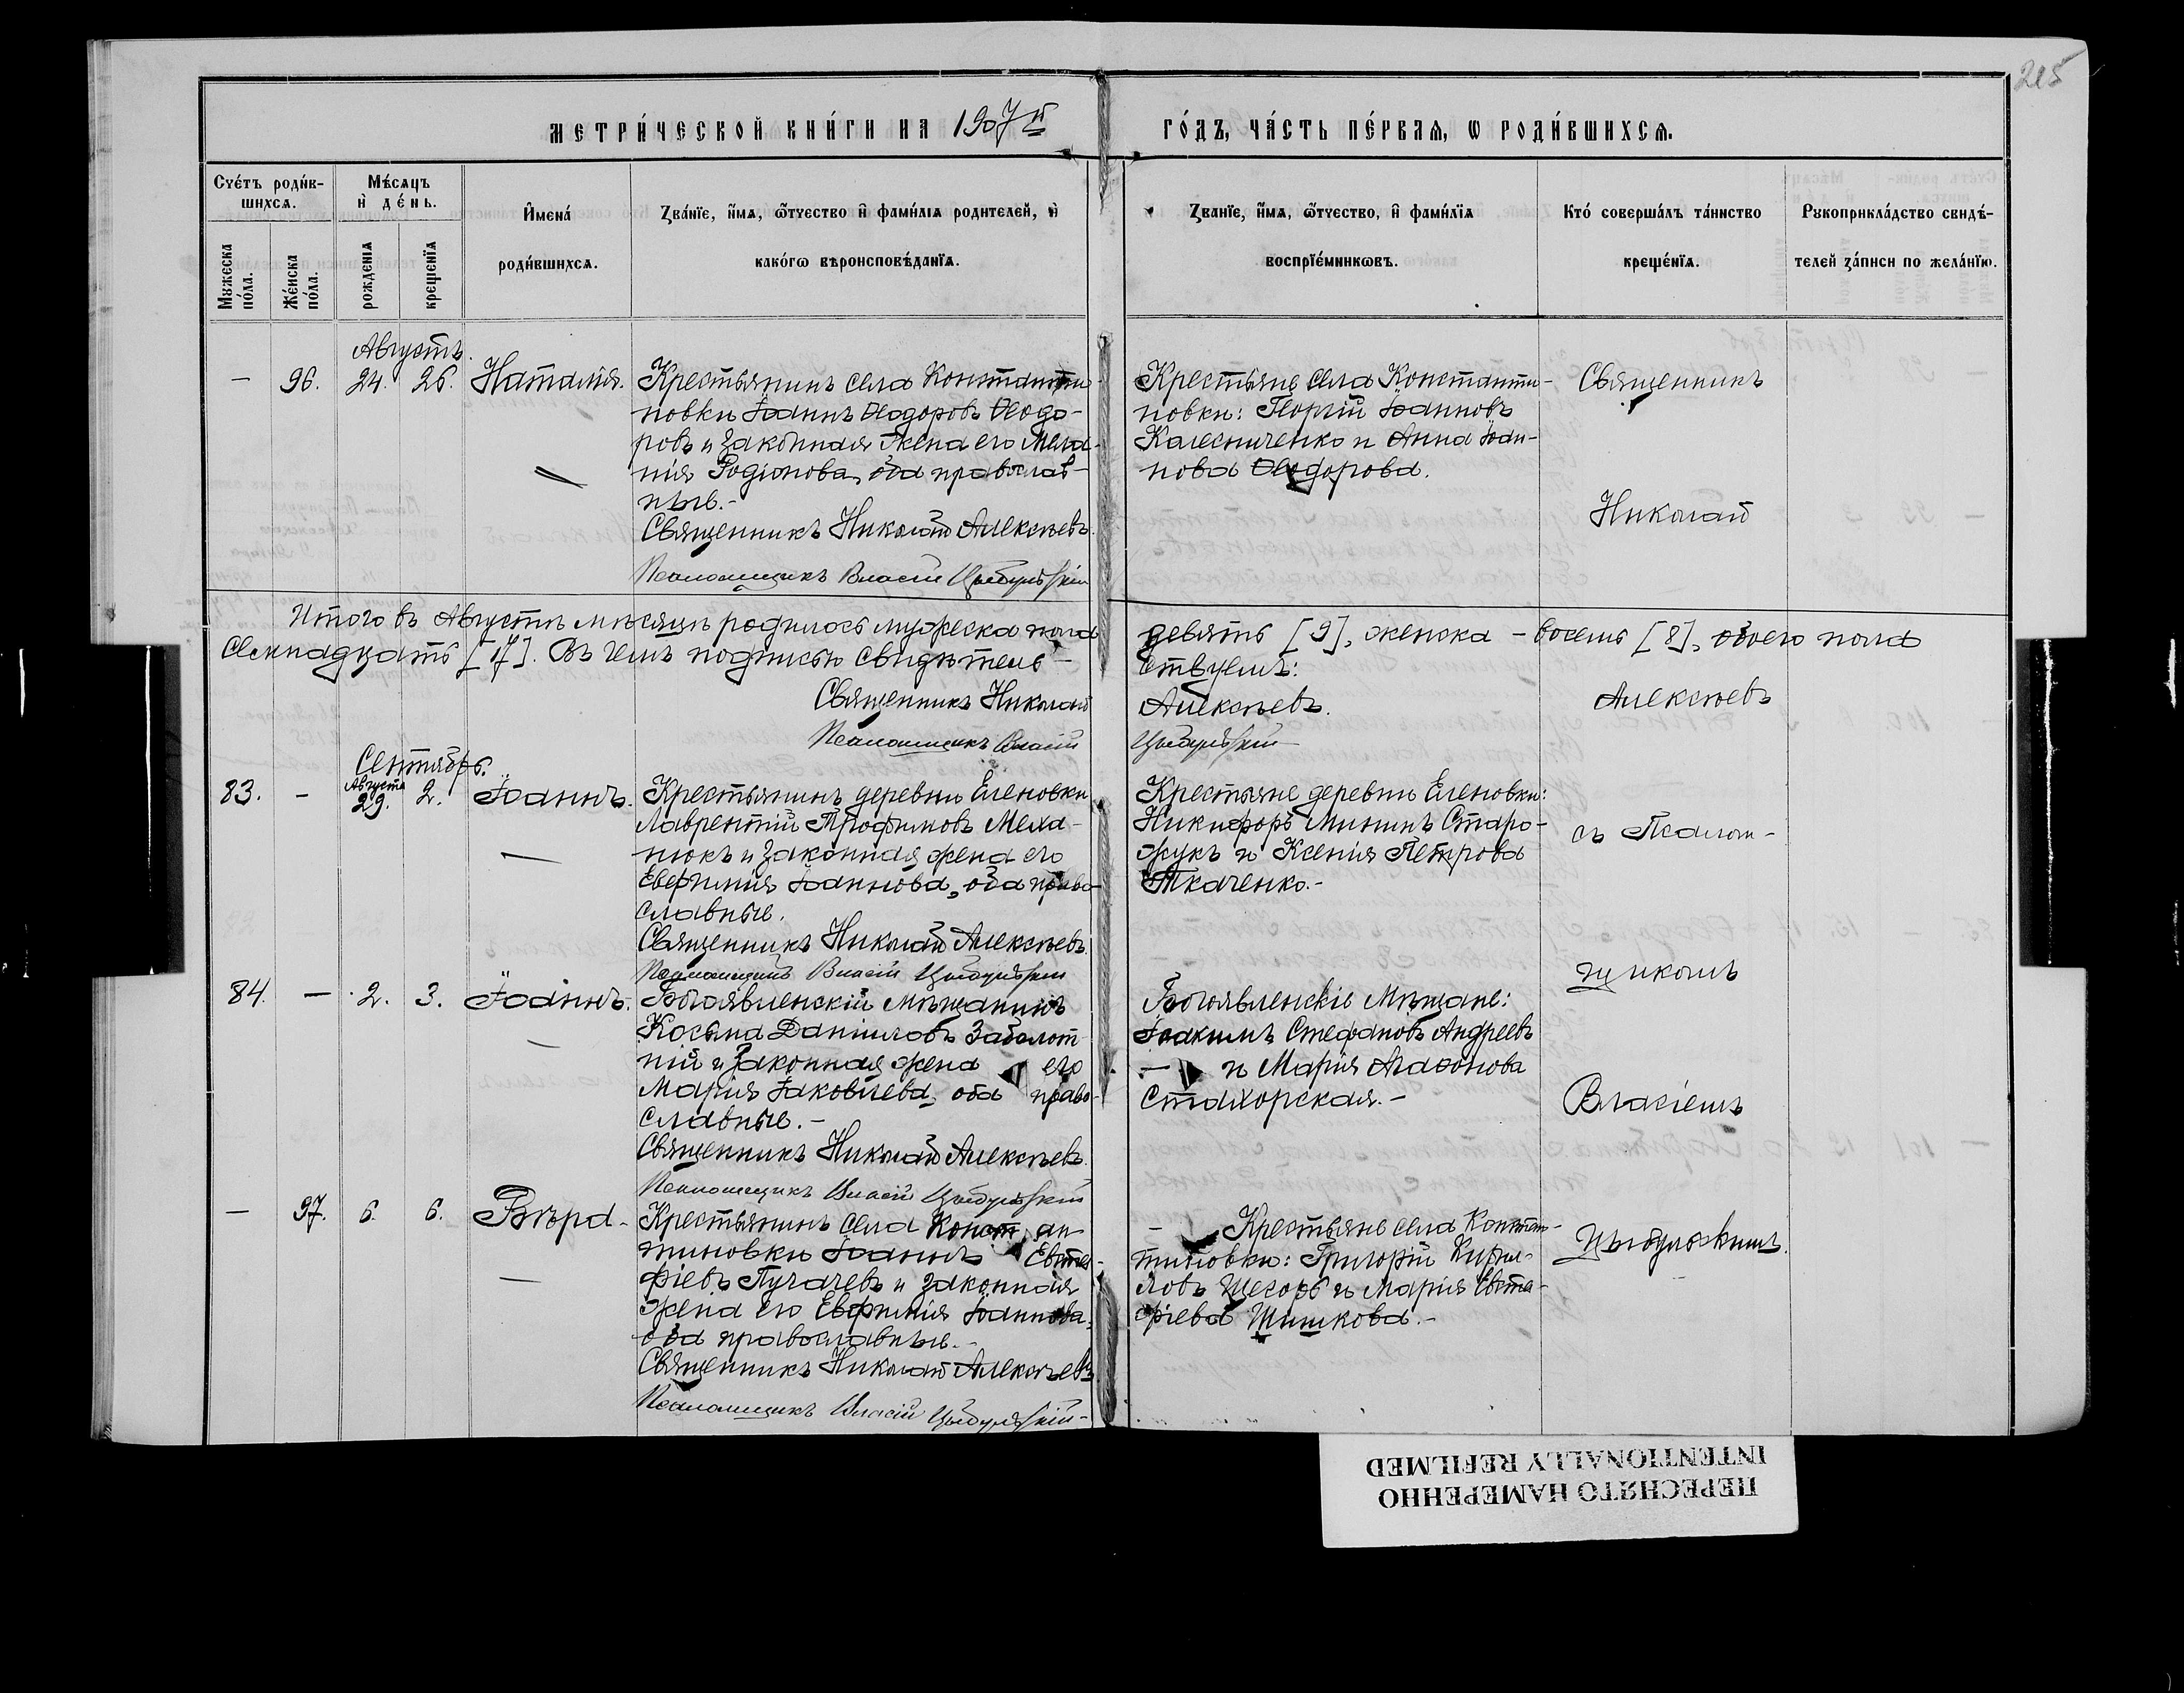 215
МЕТРИ́ЧЕСКОЙ КНИ́ГИ НА 1907й ГО́ДЪ, ЧА́СТЬ ПЕ́РВАѦ, Ѡ РОДИ́ВШИХСѦ.
Сче́тъ роди́в-
шихсѧ.
Мѣ́сѧцъ
и҆ де́нь.
И҆мена́
роди́вшихсѧ.
Зва́нїе, и҆́мѧ, ѻ҆́тчество и҆ фами́лїѧ родителей, и҆
како́гѡ вѣроисповѣ́данїѧ.
Зва́нїе, и҆́мѧ, ѻ҆́тчество, и҆ фами́лїѧ
воспрїе́мникѡвъ.
Кто́ соверша́лъ та́инство
креще́нїѧ.
Рꙋкоприкла́дство свидѣ́-
телей за́писи по жела́нїю.
Мꙋжеска
по́ла.
Же́нска
по́ла.
рожденїѧ
крещенїѧ
Августъ.
— 96. 24. 26. Наталія.
Крестьянинъ села Константи-
новки Іоаннъ Ѳеодоровъ Ѳеодо-
ровъ и законная жена его Мела-
нія Родіонова, оба православ-
ные.-
Священникъ Николай Алексѣевъ.
Псаломщикъ Власій Цыбульскій
Крестьяне села Константи-
новки: Георгій Іоанновъ
Калесниченко и Анна Іоан-
нова Ѳеодорова.
Священникъ
Николай
Итого въ Августѣ мѣсяцѣ родилось мужеска пола девять [9], женска - восемь [8], обоего пола
семнадцать [17]. Въ чемъ подписью свидѣтель-
ствуемъ:
Священникъ Николай Алексѣевъ.
Псаломщикъ Власій Цыбульскій
Алексѣевъ
Сентябрь.
83. - Августа 29. 2. Іоаннъ.
Крестьянинъ деревни Еленовки
Лаврентій Трофимовъ Меха-
нюкъ и законная жена его
Евфимія Іоаннова, оба право-
славные.
Священникъ Николай Алексѣевъ
Псаломщикъ Власій Цыбульскій
Крестьяне деревни Еленовки:
Никифоръ Мининъ Старо-
жукъ и Ксенія Петрова
Ткаченко.-
съ Псалом-
щикомъ
84. — 2. 3. Іоаннъ.
Богоявленскій мѣщанинъ
Косьма Даніиловъ Заболот
ній и законная жена его
Марія Іаковлева, оба право-
славные.-
Священникъ Николай Алексѣевъ.
Псаломщикъ Власій Цыбульскій
Богоявленскіе Мѣщане:
Іоакимъ Стефановъ Андреевъ
— и Марія Агафонова
Стахорская.-
Власіемъ
— 97. 6. 6. Вѣра-
Крестьянинъ села Конст ан-
тиновки Іоаннъ Евста-
фіевъ Пугачевъ и законная
жена его Евфимія Іоаннова,
оба православные.-
Священникъ Николай Алексѣевъ
Псаломщикъ Власій Цыбульскій-
- Крестьяне села Констан-
тиновки: Григорій Кирил-
ловъ Щегорь и Марія Евста-
фіева Шишкова.-
Цыбульскимъ.
ПЕРЕСНЯТО НАМЕРЕННО
INTENTIONALLY REFILMED